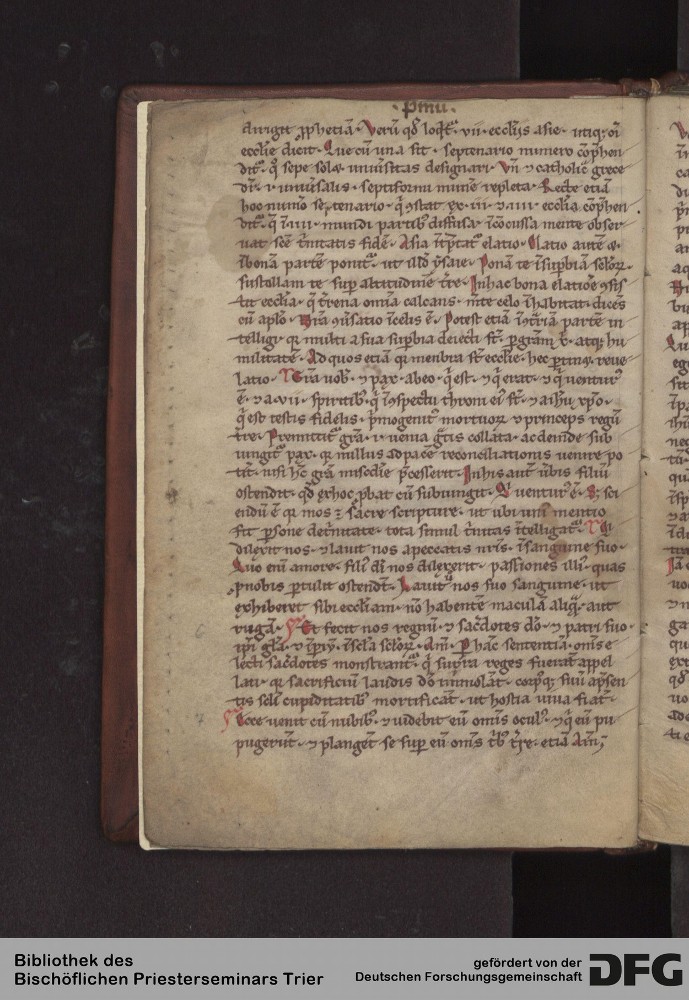 ·pmu·
dirigit ꝓphetiā. Verū qd̄ loqͥt᷑. vii. eccliis asie. utiqꝫ oī
ecclie dicit. Que cū una sit. septenario numero cōp̄hen
dit᷑. qͦ sepe solæ uniūsitas designari. Vn̄ ⁊ catholic̄ grece
dr̄. i. uniūsalis. septiformi munē repleta. Recte etiā
hoc numō septenario. q̄ ꝯstat ex. iii. ⁊ a iiii. ecclīa cōp̄hen
dit᷑. q̄ ī iiii. mundi partibꝰ diffusa īcōcussa mente obser
uat scē t̄nitatis fidē. Asia īt̄p̄tat᷑ elatio. Elatio autē
ī bonā partē ponit᷑. ut illd̄ ysaie. Ponā te ī suꝑbiā sclōꝝ.
sustollam te suꝑ altitudinē tr̄e. In hac bona elatiōe ꝯsis
tit ecclīa. q̄ t̄rena omīa calcans. mte celo īhabitat. dicēs
cū apl̄o. Nr̄a ꝯūsatio ī celis ē. Potest etiā ī ꝯt̄riā partē in
telligi. qr multi a sua suꝑbia deiecti st̄. ꝑ gram̄ atqꝫ hu
militatē. Ad quos etiā qr menbra st̄ ecclie. hec ꝑtinꝫ. reue
latio. Gr̄a uob̄. ⁊ pax. ab eo. q̄ est. ⁊ q̄ erat. ⁊ q̄ uenturꝰ
ē. ⁊ a. vii. spiritibꝰ. q̄ ī ꝯspectu throni eiꝰ st̄. ⁊ a ihū xp̄o.
q̄ est testis fidelis. p̄mogenitꝰ mortuoꝝ ⁊ princeps regū
tr̄e. Premittit᷑ gr̄a. i. uenia gr̄tis collata. ac deinde sub
iungit᷑ pax. qr nullus ad pacē reconciliationis uenire po
tit. nisi hc̄ gr̄a misc̄die p̄cesserit. In his aut̄ ūbis filiū
ostendit. qd̄ ex hoc ꝓbat cū subiungit. Et uenturꝰ ē. Sꝫ sci
endū ē qr mos ē sacre scripture. ut ubi uniꝰ mentio
fit ꝑsone de t̄nitate. tota simul t̄nitas ītelligat᷑. Qͥ
dilexit nos. ⁊ lauit nos a peccatis nr̄is. ī sanguine suo.
Quo enī amore. filiꝰ dī nos dilexerit. passiones illiꝰ. quas
ꝓ nobis ꝑtulit ostendt̄. Lauit nos suo sanguine. ut
exhiberet sibi eccliam. nō habentē maculā aliq̄. aut
rugā. Et fecit nos regnū. ⁊ sac̄dotes dō. ⁊ patri suo.
ip̄i gl̄a. ⁊ īpiū. ī scl̄a sclōꝝ. Am̄. Ꝑ hāc sententiā. oms̄ e
lecti sac̄dotes monstrant᷑. q̄ supra reges fuerāt appel
lati. qr sacrificiū laudis dō īmolāt. corpꝰqꝫ suū a p̄sen
tis scl̄i cupiditatibꝰ mortificāt. ut hostia uiua fiat.
Ecce uenit cū nubibꝰ. ⁊ uidebit eū omīs oculꝰ. ⁊ q̄ eū pu
pugerūt. ⁊ plangēt se suꝑ eū oms̄ tb̄ tr̄e. etiā Am̄;
Bibliothek des
Bischöflichen Priesterseminars Trier
gefördert von der
Deutschen Forschungsgemeinschaft
DFG